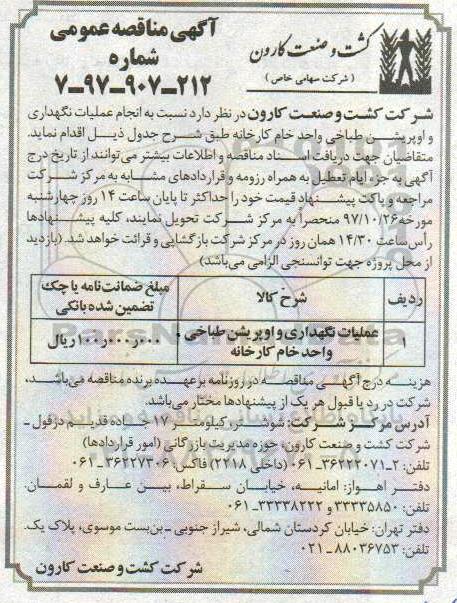 کشت و صنعت کارون
( شرکت سهامی خاص )
آگهی مناقصه عمومی
شماره
۷-۹۷-۹۰۷-۲۱۲
شرکت کشت و صنعت کارون در نظر دارد نسبت به انجام عملیات نگهداری
و اوپریشن طباخی واحد خام کارخانه طبق شرح جدول ذیل اقدام نماید.
متقاضیان جهت دریافت اسناد مناقصه و اطلاعات بیشتر می‌توانند از تاریخ درج
آگهی به جزء ایام تعطیل به همراه رزومه و قراردادهای مشابه به مرکز شرکت
مراجعه و پاکت پیشنهاد قیمت خود را حداکثر تا پایان ساعت ۱۴ روز چهارشنبه
مورخه ۹۷/۱۰/۲۶ منحصراً به مرکز شرکت تحویل نمایند، کلیه پیشنهادها
رأس ساعت ۱۴/۳۰ همان روز در مرکز شرکت بازگشایی و قرائت خواهد شد. (بازدید
از محل پروژه جهت توانسنجی الزامی می‌باشد)
ردیف شرح کالا مبلغ ضمانت‌نامه یا چک
تضمین شده بانکی
۱ عملیات نگهداری و اوپریشن طباخی
واحد خام کارخانه ۱۰۰٫۰۰۰٫۰۰۰ ریال
ParsNamadData
هزینه درج آگهی مناقصه در روزنامه بر عهده برنده مناقصه می‌باشد،
شرکت در رد یا قبول هر یک از پیشنهادها مختار می‌باشد.
آدرس مرکز شرکت: شوشتر، کیلومتر ۱۷ جاده قدیم دزفول -
شرکت کشت و صنعت کارون، حوزه مدیریت بازرگانی (امور قراردادها)
تلفن: ۲-۳۶۲۲۲۰۷۱-۰۶۱ (داخلی ۲۲۱۸) فاکس ۳۶۲۲۷۳۰۶-۰۶۱
دفتر اهواز: امانیه، خیابان سقراط، بین عارف و لقمان.
تلفن: ۳۳۳۳۵۸۵۰ و ۳۳۳۳۸۲۲۲-۰۶۱
دفتر تهران: خیابان کردستان شمالی، شیراز جنوبی - بن‌بست موسوی، پلاک یک.
تلفن: ۸۸۰۳۶۷۵۳-۰۲۱
شرکت کشت و صنعت کارون